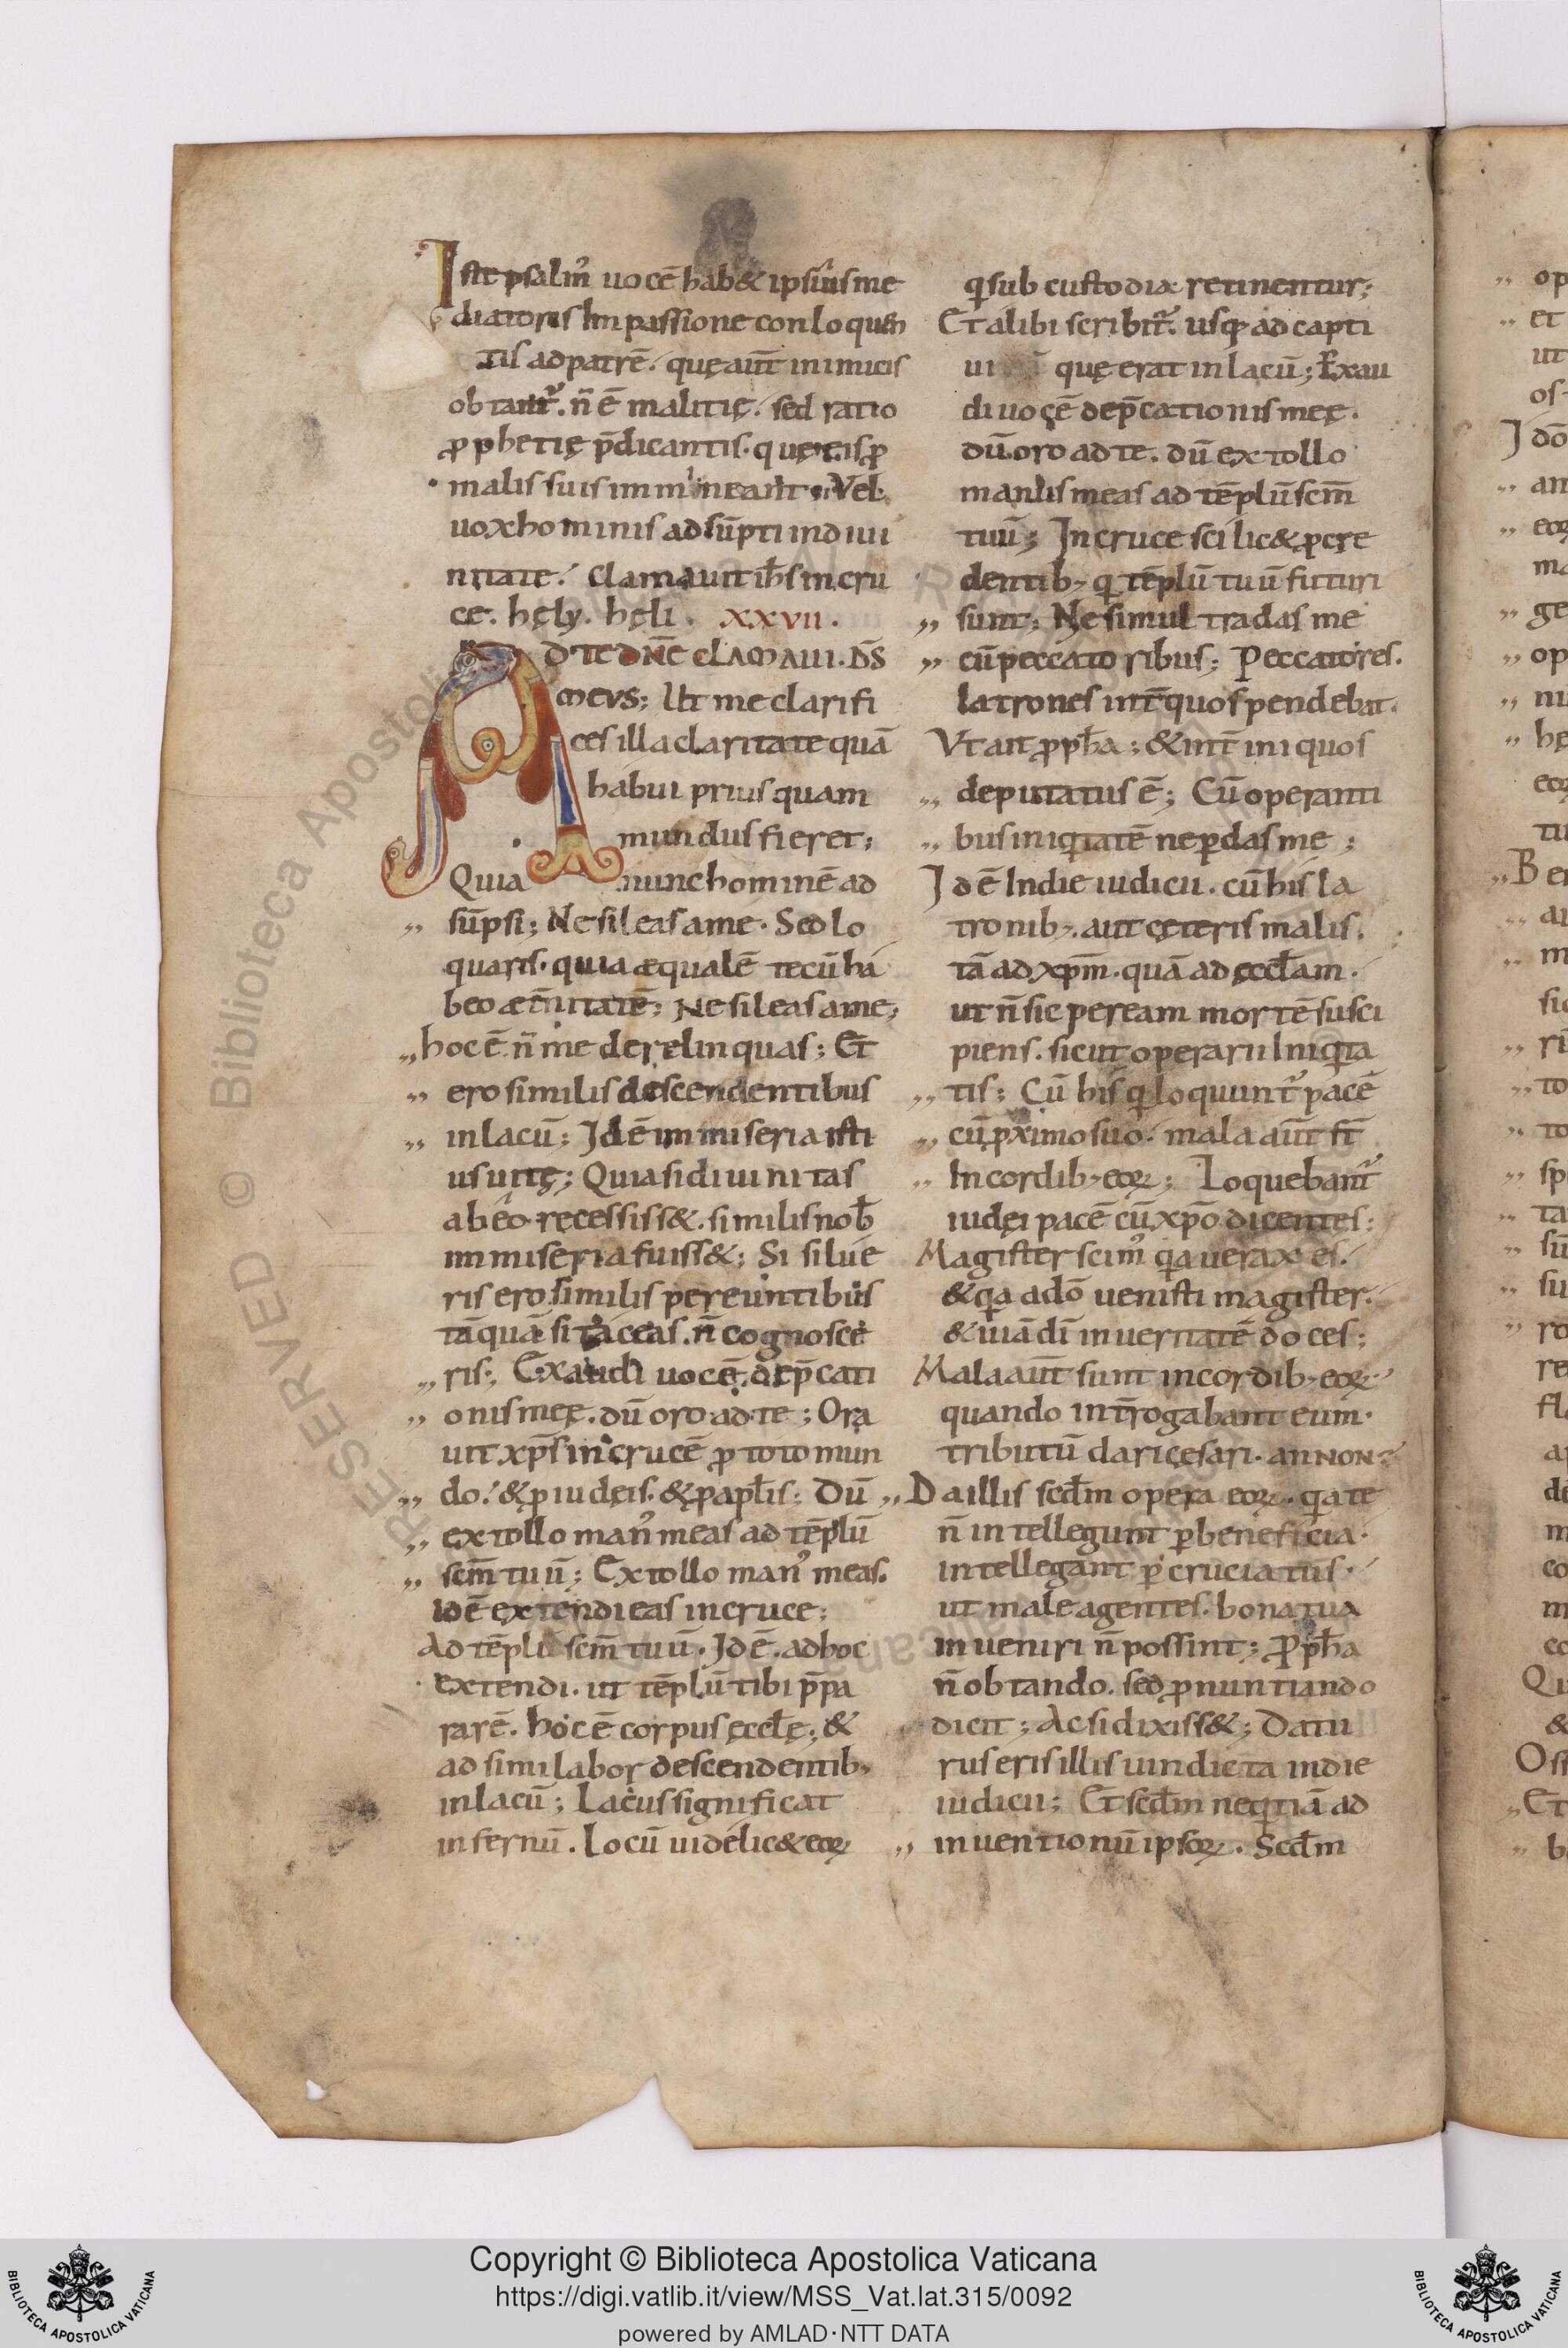 Iste psalm᷒ uocē hab& ipsius me
diatoris In passione con loquen
tis ad patrē. quę aūt inimicis
obtant᷑. n̄ ē malitię. sed ratio
ꝓphetię p̄dicantis. quę eis ꝓ
malis suis immineant; Vel
uox hominis adsūpti in diui
nitate. Clamauit ih̄s in cru
ce. hęly. hęli. XXVII.
AD TE DN̄E CLAMAUI. DS̄
MEUS; Ut me clarifi
ces illa claritate quā
habui prius quam
mundus fieret;
Quia nunc hominē ad
„ sūpsi; Ne sileas a me. Sed lo
quaris. quia æqualē tecū ha
beo æt̄nitatē; Ne sileas a me;
„ hoc ē n̄ me derelinquas; Et
„ ero similis descendentibus
„ in lacū; Id ē in miseria isti
us uitę; Quia si diuinitas
ab eo recessiss&. similis nob̄
in miseria fuiss&; Si silue
ris ero similis pereuntibus
tāquā si taceas. n̄ cognosce
„ ris; Exaudi uocē dep̄cati
„ onis meę. dū oro ad te; Ora
uit xp̄s in crucē ꝓ toto mun
„ do. & ꝓ iudęis. & ꝓ apl̄is; Dū
„ extollo man᷒ meas ad tēplū
„ sc̄m tuū; Extollo man᷒ meas.
id ē extendi eas in cruce;
Ad tēplū sc̄m tuū. Id ē. ad hoc
extendi. ut tēplū tibi p̄pa
rarē. hoc ē corpus ęccl̄ę; &
adsimilabor descendentib;
in lacū; Lacus significat
infernū. Locū uidelic& eoꝝ
qi sub custodia retinentur;
Et alibi scribit᷑. usq; ad capti
ui quę erat in lacū; Exau
di uocē dep̄cationis meę.
dū oro ad te. dū extollo
manus meas ad tēplū sc̄m
tuū; In cruce scilic& ꝓ cre
dentib; qi tēplū tuū futuri
„ sunt; Ne simul tradas me
„ cū peccatoribus; Peccatores.
latrones int̄ quos pendebat.
Vt ait ꝓph̄a; & int̄ iniquos
„ deputatus ē; Cū operanti
„ bus iniqitatē ne ꝑdas me;
Id ē In die iudicii. cū his la
tronib;. aut cęteris malis.
tā ad xp̄m. quā ad ęccl̄am.
ut n̄ sic peream mortē susci
piens. sicut operarii Iniqita
„ tis; Cū his qi loquunt᷑ pacē
„ cū ꝓximo suo. mala aūt st̄
„ In cordib; eoꝝ; Loquebant᷑
iudęi pacē cū xp̄o dicentes;
Magister scim᷒ qia uerax es.
& qia a dō uenisti magister.
& uiā dī in ueritatē doces;
Mala aūt sunt in cordib; eoꝝ
quando int̄rogabant eum.
tributū dari cęsari. an NON?
„ Da illis scd̄m opera eoꝝ. qia te
n̄ intellegunt ꝑ beneficia.
intellegant ꝑ cruciatus.
ut male agentes. bona tua
inueniri n̄ possint; Ꝓph̄a
n̄ obtando. sed ꝓnuntiando
dicit; Ac si dixiss&; Datu
rus eris illis uindicta in die
iudicii; Et scd̄m neqitiā ad
„ inuentionū ipsoꝝ. Scd̄m
Copyright © Biblioteca Apostolica Vaticana
https://digi.vatlib.it/view/MSS_Vat.lat.315/0092
powered by AMLAD·NTT DATA
BIBLIOTECA APOSTOLICA VATICANA
BIBLIOTECA APOSTOLICA VATICANA